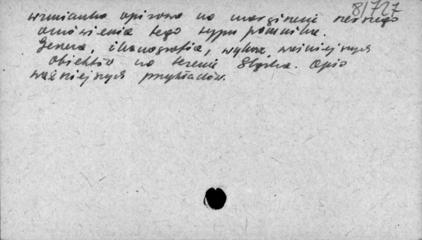 8/727
wzmianka opisowa na marginesie szerszego
omówienia tego typu pomników.
Geneza, ikonografia, wykaz ważniejszych
obiektów na terenie Śląska. Opis
ważniejszych przykładów.